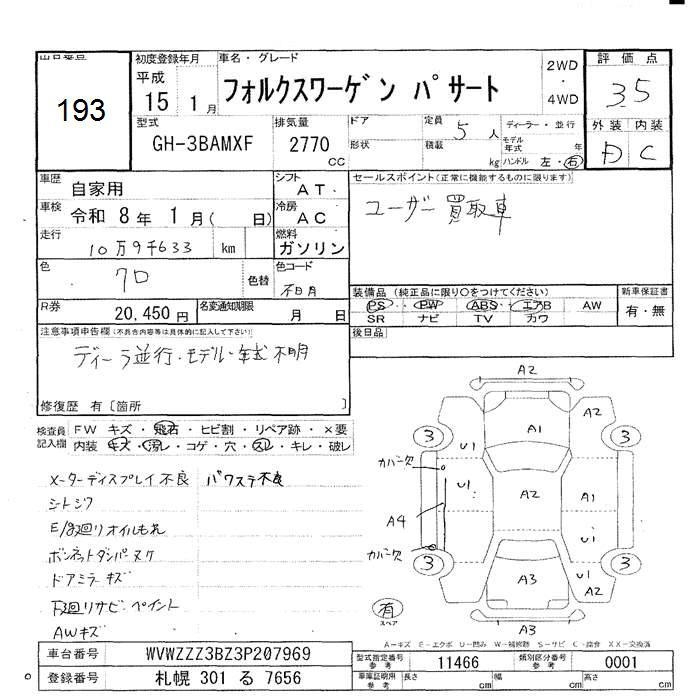 193
初度登録年月 車名・グレード 2WD 評価点
平成 15 1月 フォルクスワーゲン パサート ・ 4WD 3.5
型式 排気量 ドア 定員 5人 ディーラー・並行 外装 内装
GH-3BAMXF 2770 CC 形状 積載 kg モデル年式 年 ハンドル 左・右 D C
車歴 自家用 シフト AT. セールスポイント(正常に機能するものに限ります)
車検 令和8年1月( 日) 冷房 AC ユーザー買取車
走行 10万9千633 km 燃料 ガソリン
色 クロ 色替 色コード 不明
装備品 (純正品に限り○をつけてください) 新車保証書
R券 20,450円 名変通知期限 月 日 PS・PW・ABS・エアB AW 有・無
SR ナビ TV カワ
注意事項申告欄(不具合内容等は具体的に記入して下さい) 後日品
ディーラ並行・モデル・年式不明
修復歴 有〔箇所 〕
検査員記入欄 FW キズ・飛石・ヒビ割・リペア跡・×要
内装 キズ・汚れ・コゲ・穴・スレ・キレ・破レ
メーターディスプレイ不良 パワステ不良
シートシワ
E/G廻りオイルもれ
ボンネットダンパヌケ
ドアミラーキズ
下廻リサビペイント
AWキズ
A2
A2
3 A1 3
U1
カバー欠
U1 A2 A1
A4
U1
カバー欠
3 A3 U1 3
A2
有
スペア
A3
A―キズ E―エクボ U―凹み W―補修跡 S―サビ C―腐食 XX―交換済
車台番号 WVWZZZ3BZ3P207969 型式指定番号 参考 11466 類別区分番号 参考 0001
登録番号 札幌 301 る 7656 車庫証明用 参考 長さ cm 幅 cm 高さ cm